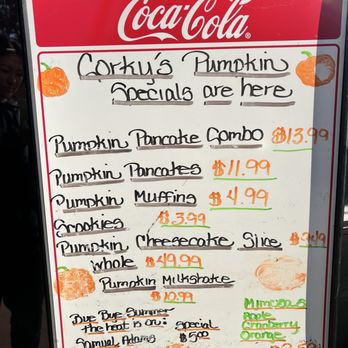 Coca-Cola
Corky's Pumpkin
Specials are here
Pumpkin Pancake Combo $13.99
Pumpkin Pancakes $11.99
Pumpkin Muffins $4.99
Crookies $3.99
Pumpkin Cheesecake Slice
whole $49.99
Pumpkin Milkshake
$10.99
Bye Bye Summer
the heat is on! Special
Samuel Adams $5.00
Mimosas
Apple
Cranberry
Orange